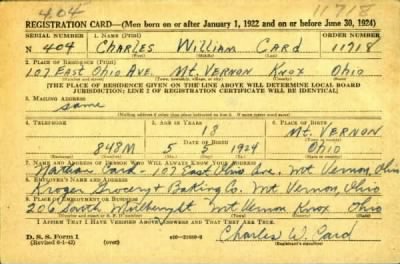 404 11718
REGISTRATION CARD—(Men born on or after January 1, 1922 and on or before June 30, 1924)
SERIAL NUMBER 1. NAME (Print) ORDER NUMBER
N 404 CHARLES William CARD 11718
(First) (Middle) (Last)
2. PLACE OF RESIDENCE (Print)
107 EAST Ohio AVE. MT. VERNON KNOX Ohio
(Number and street) (Town, township, village, or city) (County) (State)
[THE PLACE OF RESIDENCE GIVEN ON THE LINE ABOVE WILL DETERMINE LOCAL BOARD
JURISDICTION; LINE 2 OF REGISTRATION CERTIFICATE WILL BE IDENTICAL]
3. MAILING ADDRESS
Same
[Mailing address if other than place indicated on line 2. If same insert word same]
4. TELEPHONE 5. AGE IN YEARS 6. PLACE OF BIRTH
18 MT. VERNON
DATE OF BIRTH
848M 5 5 1924 OHIO
7. NAME AND ADDRESS OF PERSON WHO WILL ALWAYS KNOW YOUR ADDRESS
Card - 107 East Ohio Ave. Mt Vernon, Ohio
8. EMPLOYER'S NAME AND ADDRESS
Kroger Grocery & Baking Co. Mt Vernon, Ohio
9. PLACE OF EMPLOYMENT OR BUSINESS
206 South Mulberry St Mt Vernon Knox Ohio
I AFFIRM THAT I HAVE VERIFIED ABOVE ANSWERS AND THAT THEY ARE TRUE.
D. S. S. Form 1
(Revised 6-1-42) (over) Charles W. Card
(Registrant's signature)